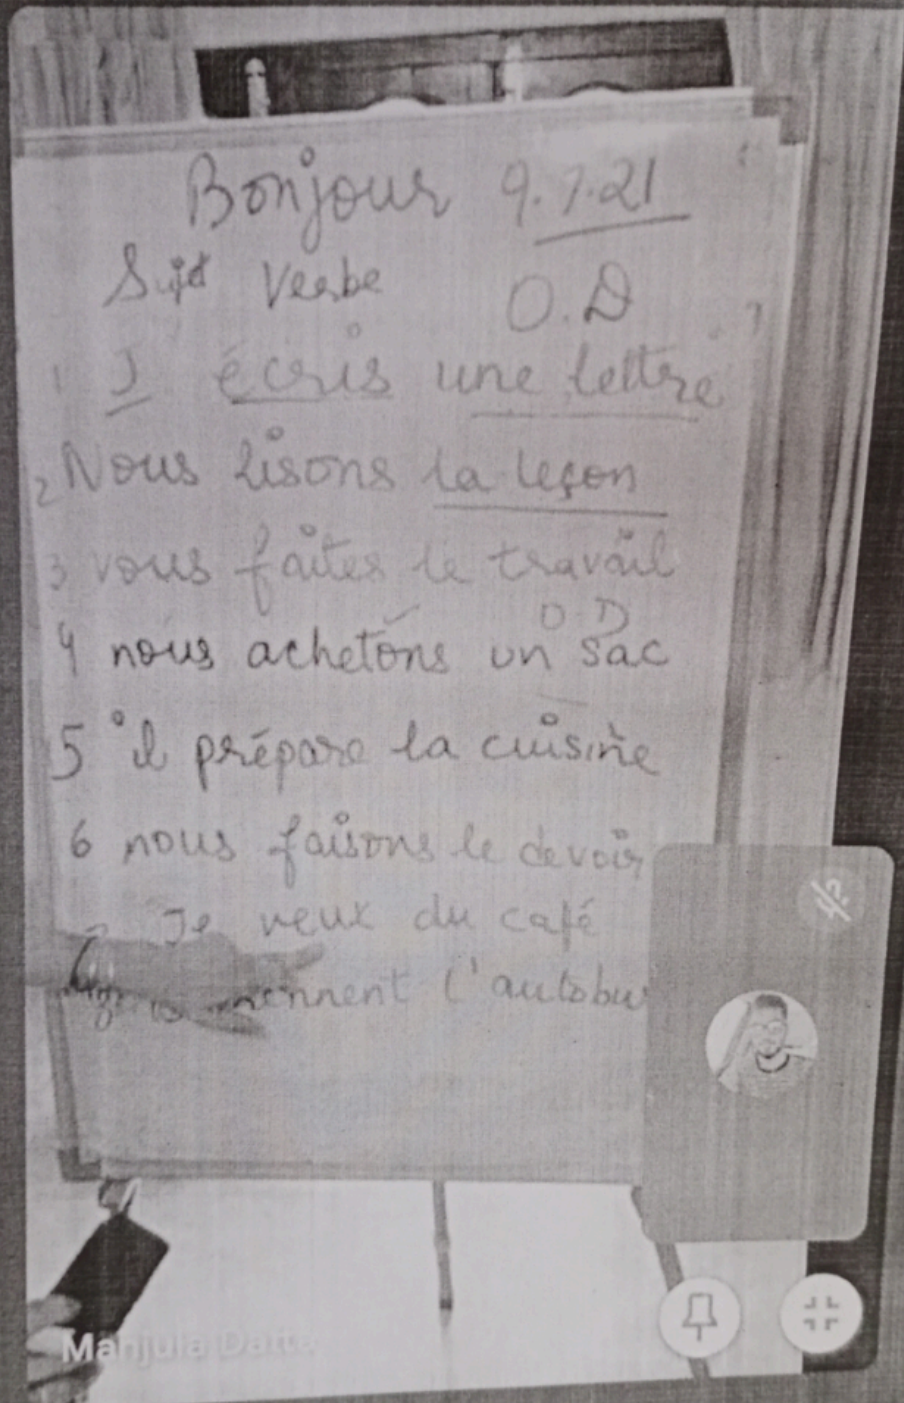 Bonjour 9.7.21
Sujet Verbe O.D
1 J' écris une lettre
2 Nous lisons la leçon
3 vous faites le travail
O.D
4 nous achetons un sac
5 il prépare la cuisine
6 nous faisons le devoir
7 Je veux du café
l'autobus
Manjula Datta